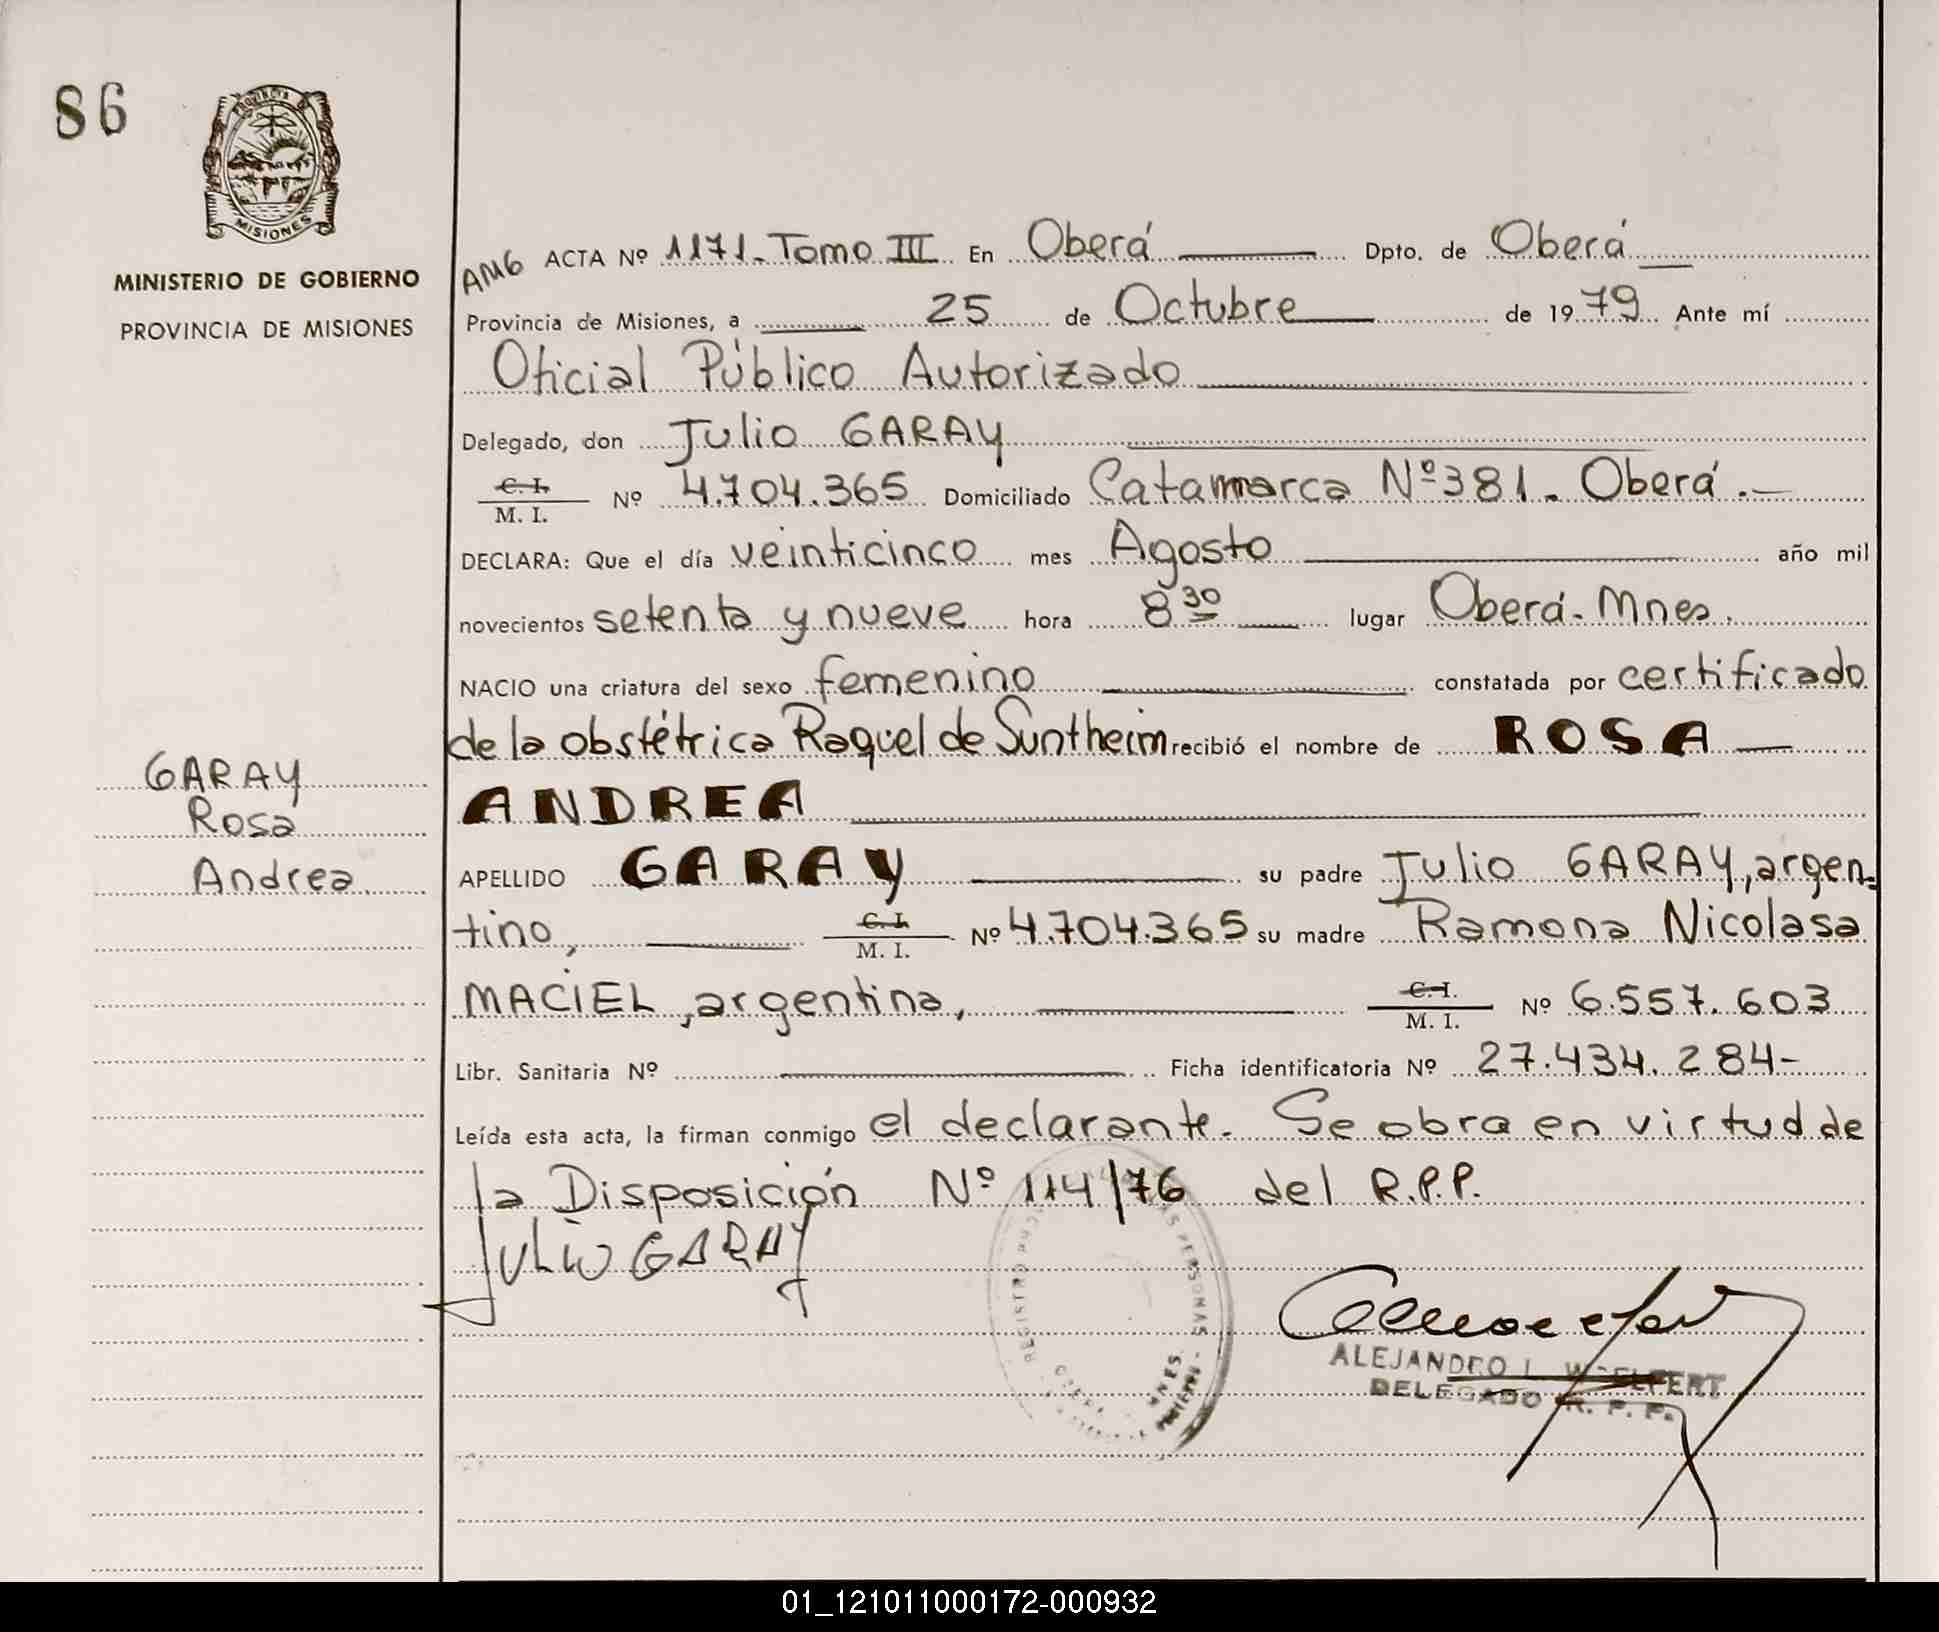 86
PROVINCIA DE
MISIONES
MINISTERIO DE GOBIERNO
PROVINCIA DE MISIONES
AMG ACTA Nº 1171. Tomo III En Oberá Dpto. de Oberá
Provincia de Misiones, a 25 de Octubre de 1979 Ante mí
Oficial Público Autorizado
Delegado, don Julio GARAY
C. I.
M. I. Nº 4.704.365 Domiciliado Catamarca Nº 381. Oberá.-
DECLARA: Que el día veinticinco mes Agosto año mil
novecientos setenta y nueve hora 8 30 lugar Oberá-Mnes.
NACIO una criatura del sexo femenino constatada por certificado
de la obstétrica Raquel de Suntheim recibió el nombre de ROSA
ANDREA
GARAY
Rosa
Andrea
APELLIDO GARAY su padre Julio GARAY, argen-
tino, C. I.
M. I. Nº 4.704.365 su madre Ramona Nicolasa
MACIEL, argentina, C. I.
M. I. Nº 6.557.603
Libr. Sanitaria Nº Ficha identificatoria Nº 27.434.284-
Leída esta acta, la firman conmigo el declarante. Se obra en virtud de
la Disposición Nº 114/76 del R.P.P.
JULIO GARAY
REGISTRO PERSONAS
MNES.
ALEJANDRO L. WOELFERT
DELEGADO R. P. P.
01_121011000172-000932